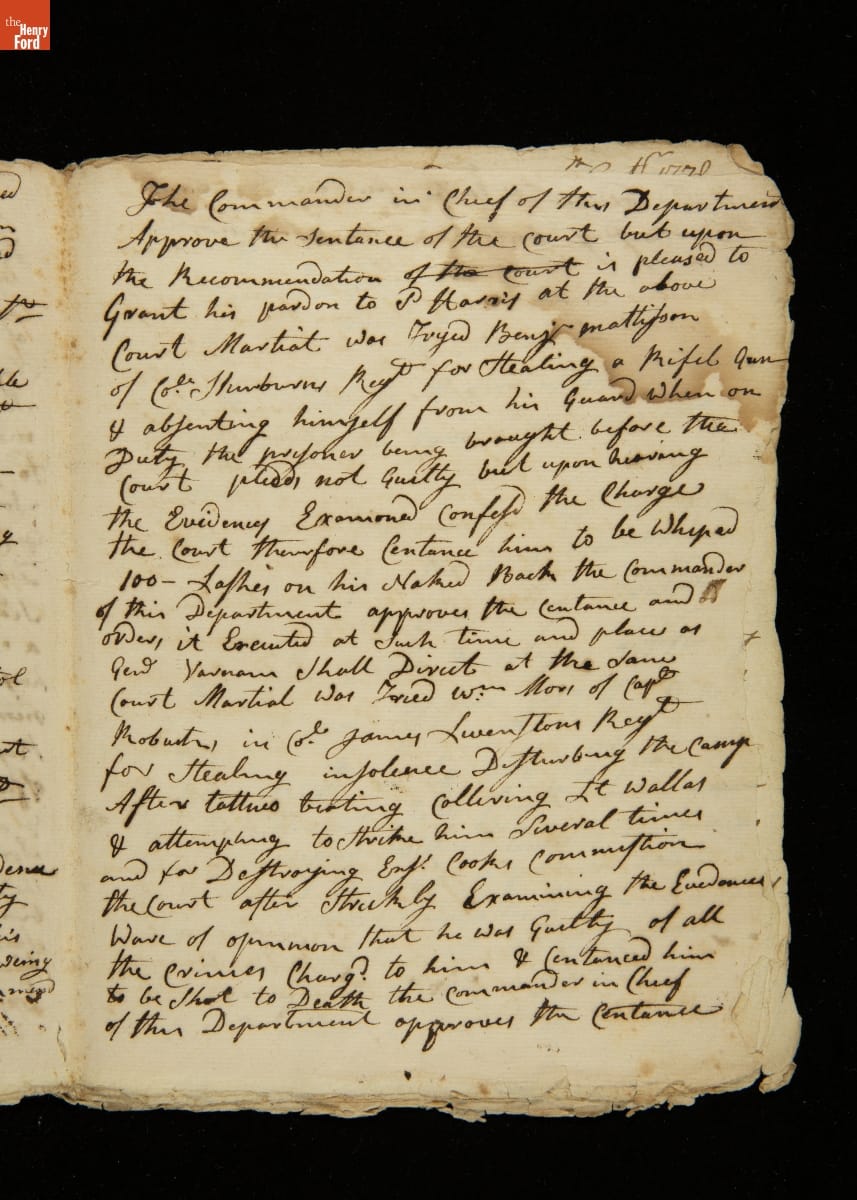 the Henry Ford
1778
The Commander in Chief of this Department
Approve the Sentance of the Court but upon
the Recommendation of the Court is pleased to
Grant his pardon to P Harris at the above
Court Martial was Tryed Benj mattisson
of Col. Shurburns Regt for Stealing a Rifel Gun
& absenting himself from his Guard when on
Duty the prisoner being brought before the
Court pleds not Guilty but upon hearing
the Evidences Examoned confesd the Charge
the Court therefore Centance him to be Whiped
100 - Lashes on his Naked Back the Commander
of this Department approves the Centance and
orders it Executed at Such time and place as
Genl Varnam Shall Direct at the Same
Court Martial was Tried Wm Mors of Capt
Robarts, in Col. James Livenstons Regt
for Stealing insolence Desturbing the Camp
After tattuo beating Collering Lt Wallas
& attempting to Strike him Several times
and for Destroying Ensn Cooks Commistion
the Court after Strickly Examining the Evidences
Ware of opinnion that he was Guilty of all
the Crimes Chargd to him & Centanced him
to be Shot to Death the Commander in Cheif
of this Department approves the Centance